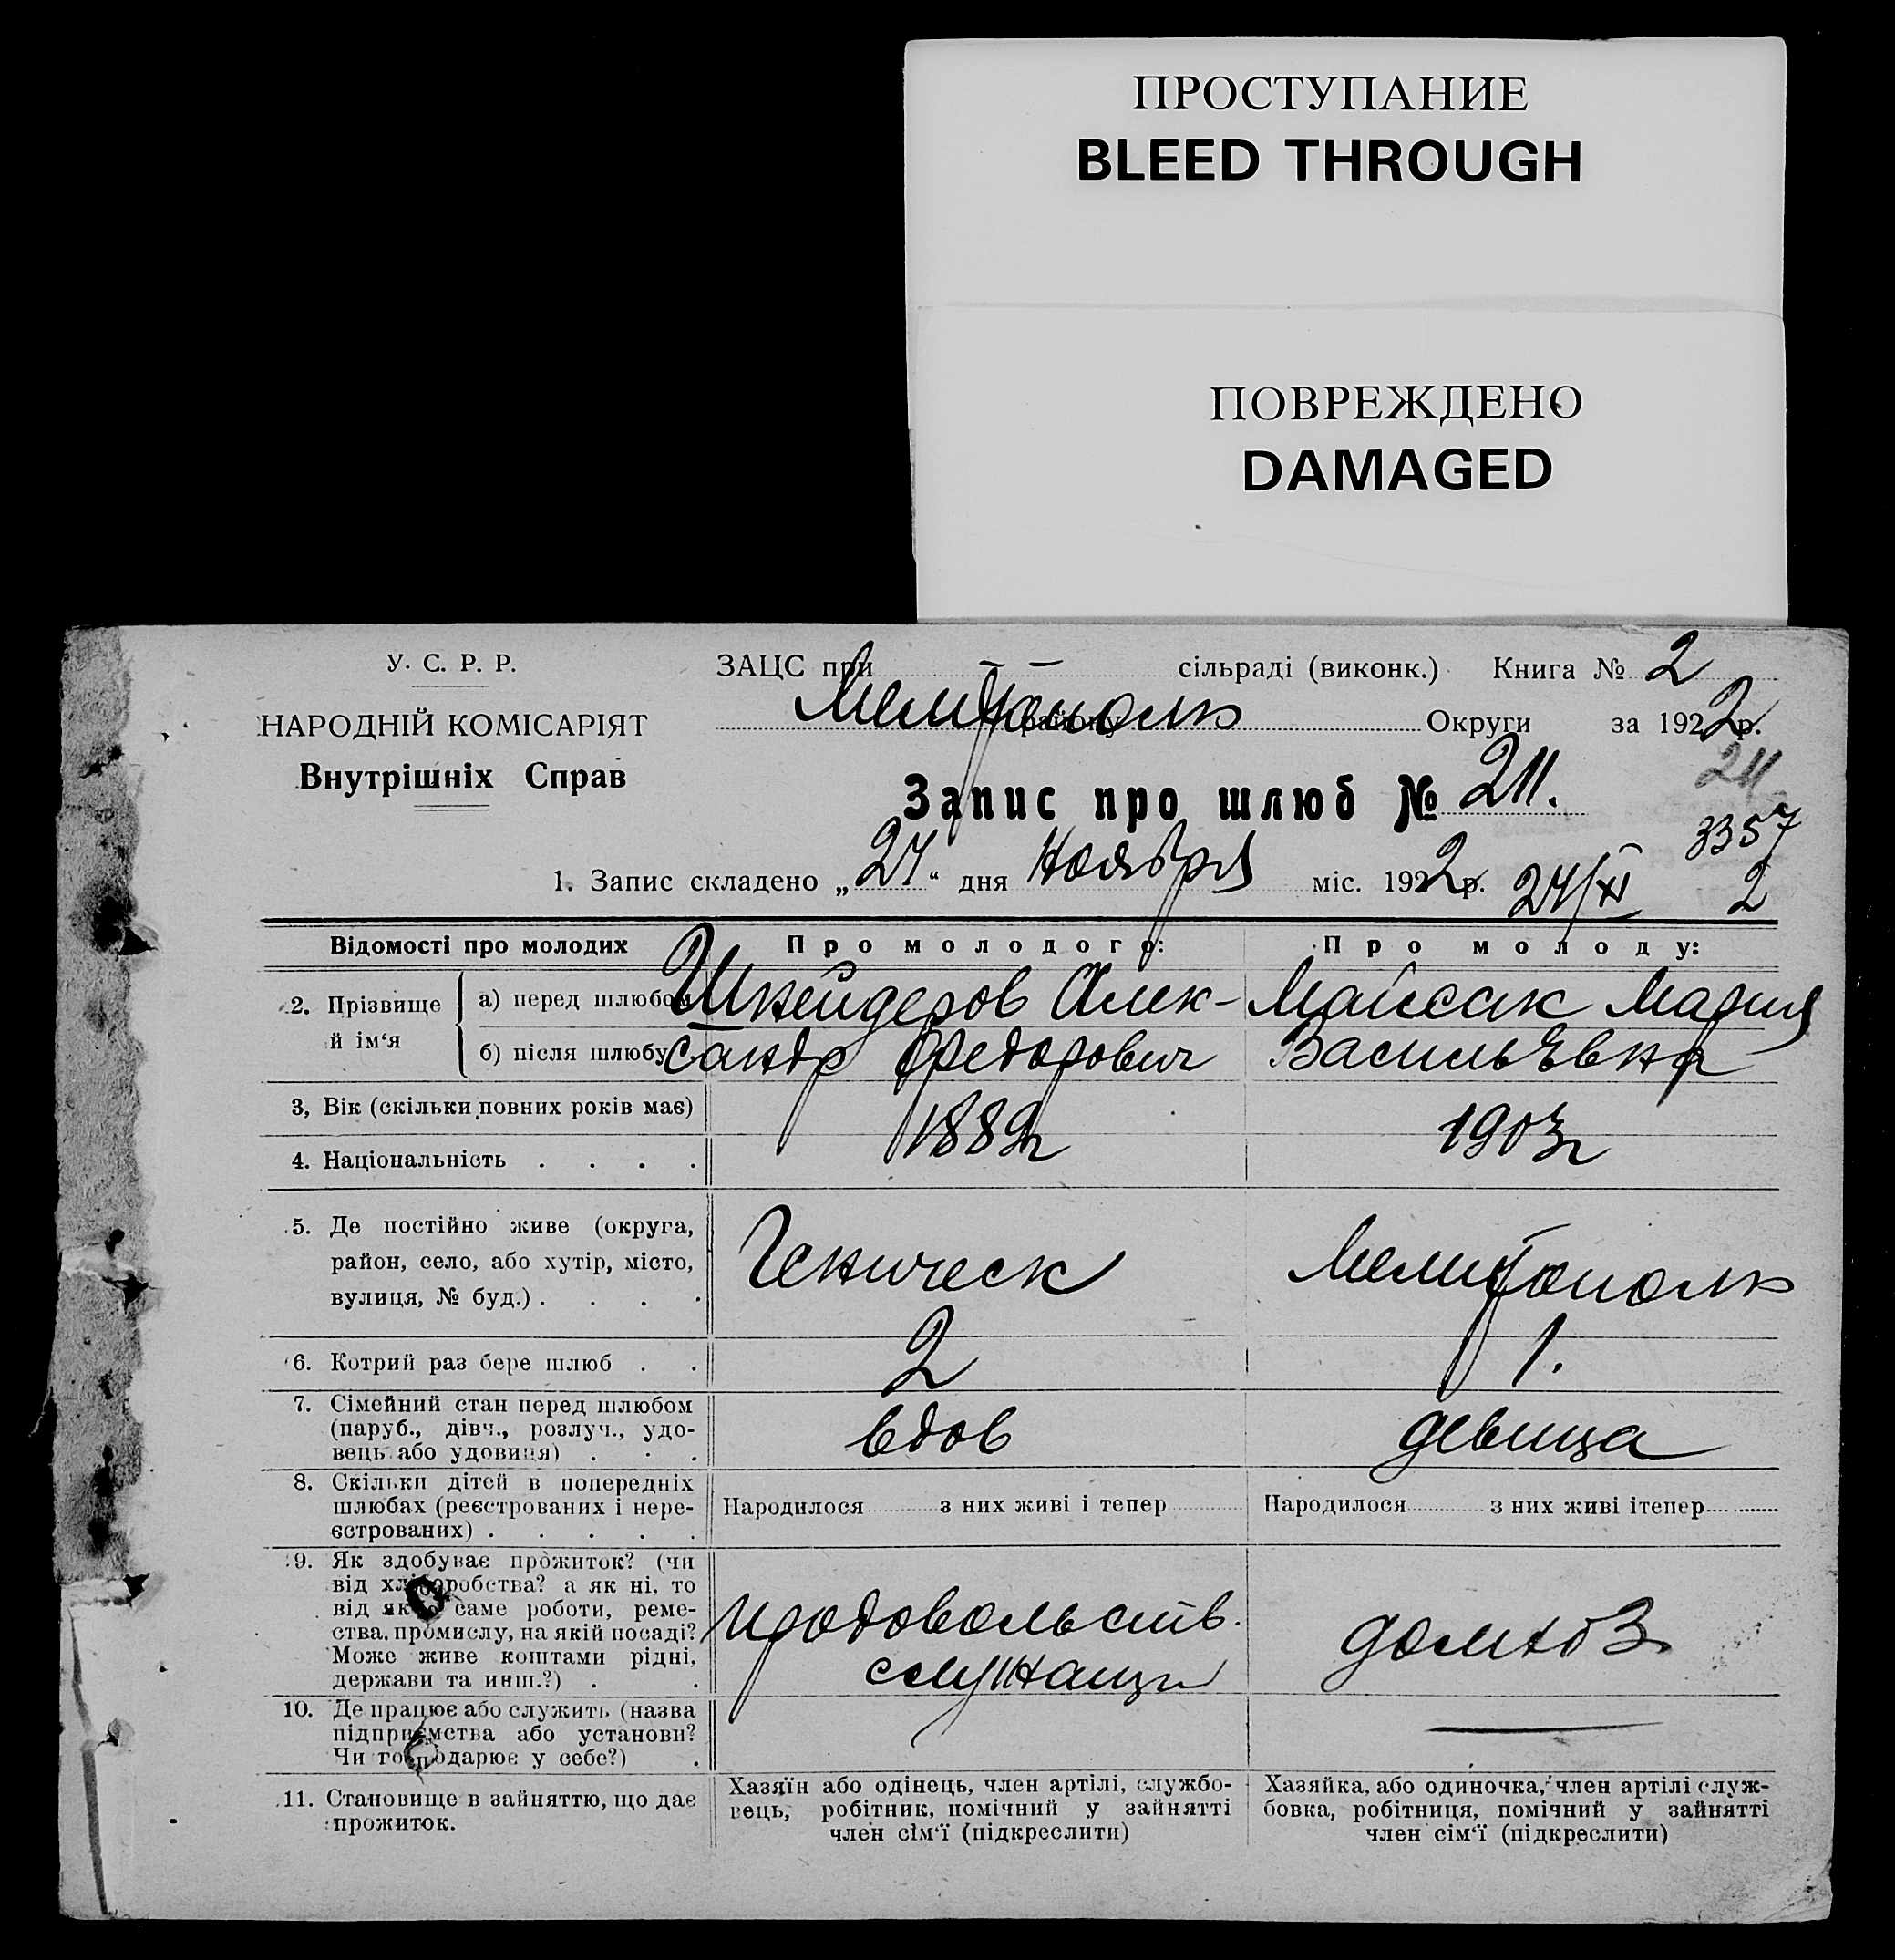 ПРОСТУПАНИЕ
BLEED THROUGH
ПОВРЕЖДЕНО
DAMAGED
У. С. Р. Р.
ЗАЦС при — — сільраді (виконк.) Книга № 2
Мелитополь району Округи за 1922 р.
НАРОДНІЙ КОМІСАРІЯТ
Внутрішніх Справ
211
Запис про шлюб № 211.
3357
1. Запис складено „24“ дня Ноября міс. 1922 р. 24/XI 2
Відомості про молодих
Про молодого:
Про молоду:
2. Прізвище й ім‘я
а) перед шлюбом
б) після шлюбу
Шнейдеров Алек-
сандр Федорович
Майсак Мария
Васильевна
3, Вік (скільки повних років має)
1889г
1903г
4. Національність . . . .
5. Де постійно живе (округа,
район, село, або хутір, місто,
вулиця, № буд.) . . . .
Геническ
Мелитополь
6. Котрий раз бере шлюб . .
2
1.
7. Сімейний стан перед шлюбом
(паруб., дівч., розлуч., удо-
вець або удовиця) . . .
вдов
девица
8. Скільки дітей в попередніх
шлюбах (реєстрованих і нере-
єстрованих) . . . . .
Народилося з них живі і тепер
Народилося з них живі ітепер
9. Як здобуває прожиток? (чи
від хліборобства? а як ні, то
від якої саме роботи, реме-
ства, промислу, на якій посаді?
Може живе коштами рідні,
держави та инш.?) . .
продовольств.
служащи
домхоз
10. Де працює або служить (назва
підприємства або установи?
Чи господарює у себе?) .
11. Становище в зайняттю, що дає
прожиток.
Хазяїн або одінець, член артілі, службо-
вець, робітник, помічний у зайнятті
член сім‘ї (підкреслити)
Хазяйка, або одиночка, член артілі служ-
бовка, робітниця, помічний у зайнятті
член сім‘ї (підкреслити)